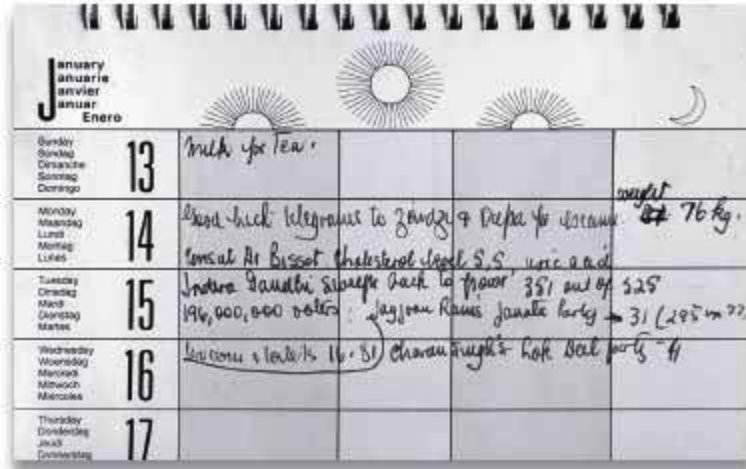 January
Januarie
Janvier
Januar
Enero
Sunday
Sondag
Dimanche
Sonntag
Domingo
13
Milk for Tea.
Monday
Maandag
Lundi
Montag
Lunes
14
weight
Good luck telegrams to Zindzi & Depa for exams 76 kg.
Consult Dr Bissot Cholesterol level 5,5 uric acid
Tuesday
Dinsdag
Mardi
Dienstag
Martes
15
Indira Gandhi sweeps back to power 351 out of 525
196,000,000 voters: Jagjivan Rams Janata Party 31 (295 in 77)
Wednesday
Woensdag
Mercredi
Mittwoch
Miercoles
16
16.81 Charan Singh's Lok Dal party
Thursday
Donderdag
Jeudi
Donnerstag
17